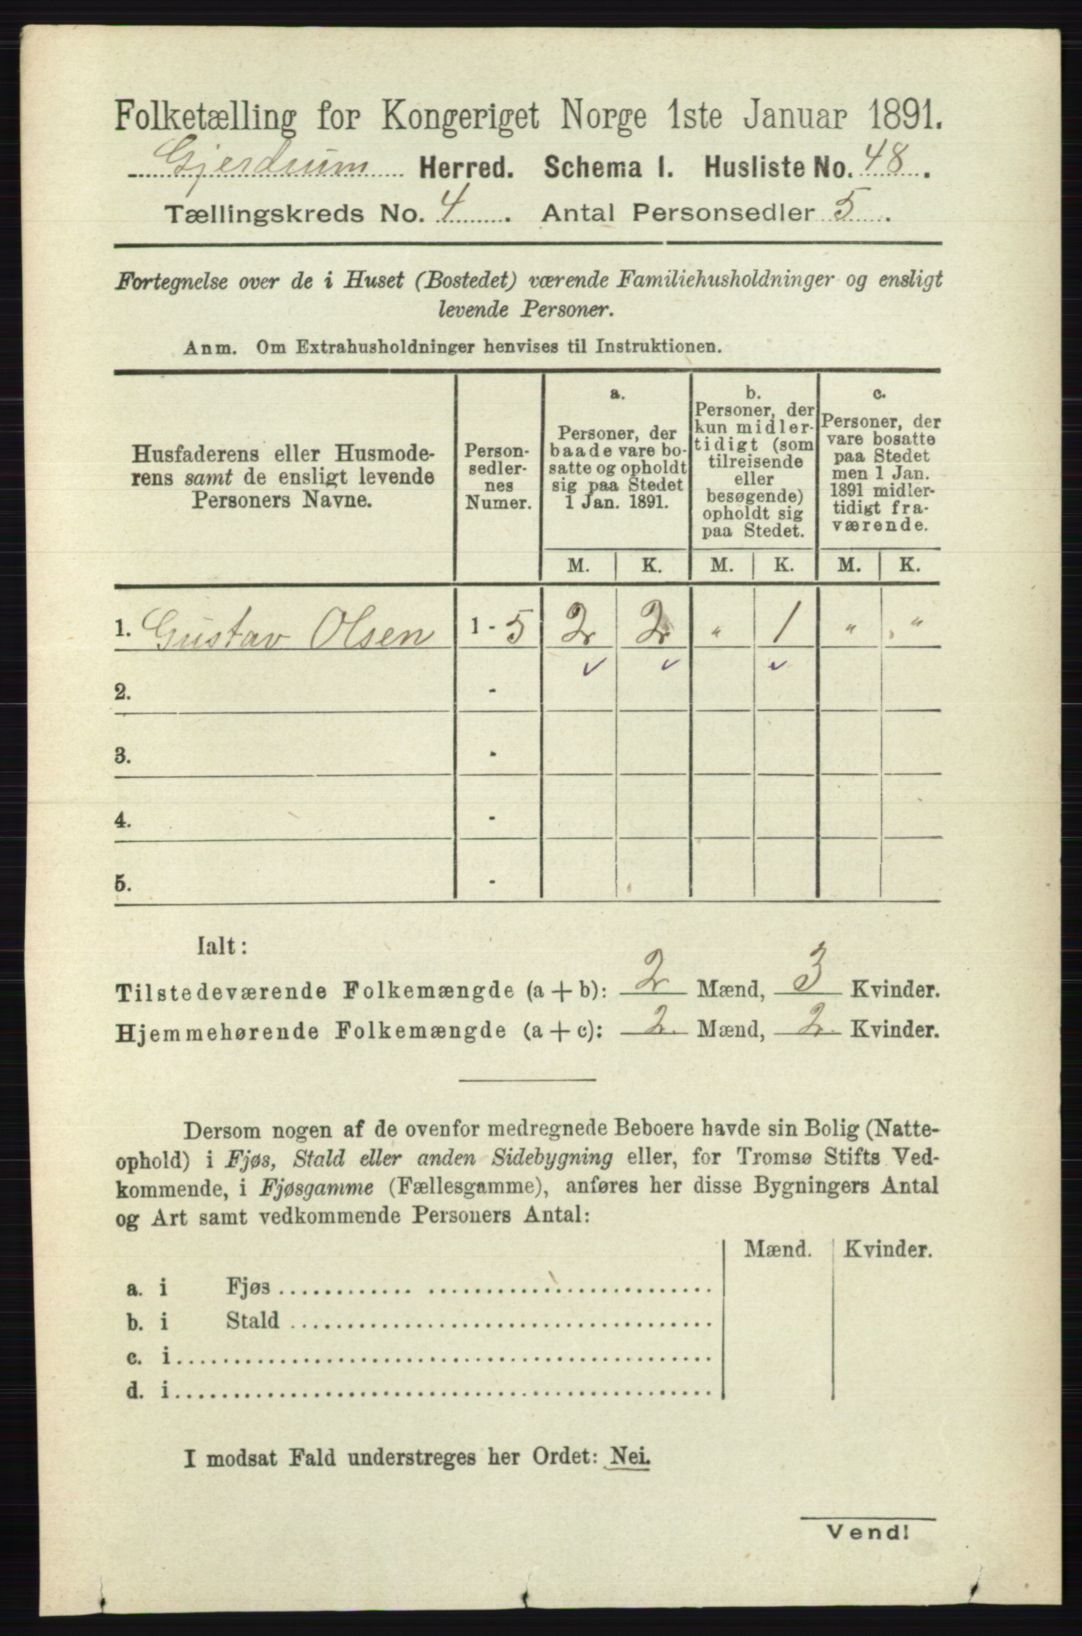 Folketælling for Kongeriget Norge 1ste Januar 1891.
Gjerdrum Herred. Schema I. Husliste No. 48.
Tællingskreds No. 4. Antal Personsedler 5.
Fortegnelse over de i Huset (Bostedet) værende Familiehusholdninger og ensligt
levende Personer.
Anm. Om Extrahusholdninger henvises til Instruktionen.
Husfaderens eller Husmode-
rens samt de ensligt levende
Personers Navne.
Person-
sedler-
nes
Numer.
a.
Personer, der
baade vare bo-
satte og opholdt
sig paa Stedet
1 Jan. 1891.
b.
Personer, der
kun midler-
tidigt (som
tilreisende
eller
besøgende)
opholdt sig
paa Stedet.
c.
Personer, der
vare bosatte
paa Stedet
men 1 Jan.
1891 midler-
tidigt fra-
værende.
M. K. M. K. M. K.
1. Gustav Olsen 1 - 5 2 2 " 1 " "
2. -
3. -
4. -
5. -
Ialt:
Tilstedeværende Folkemængde (a + b): 2 Mænd, 3 Kvinder.
Hjemmehørende Folkemængde (a + c): 2 Mænd, 2 Kvinder.
Dersom nogen af de ovenfor medregnede Beboere havde sin Bolig (Natte-
ophold) i Fjøs, Stald eller anden Sidebygning eller, for Tromsø Stifts Ved-
kommende, i Fjøsgamme (Fællesgamme), anføres her disse Bygningers Antal
og Art samt vedkommende Personers Antal:
Mænd. Kvinder.
a. i Fjøs
b. i Stald
c. i
d. i
I modsat Fald understreges her Ordet: Nei.
Vend!